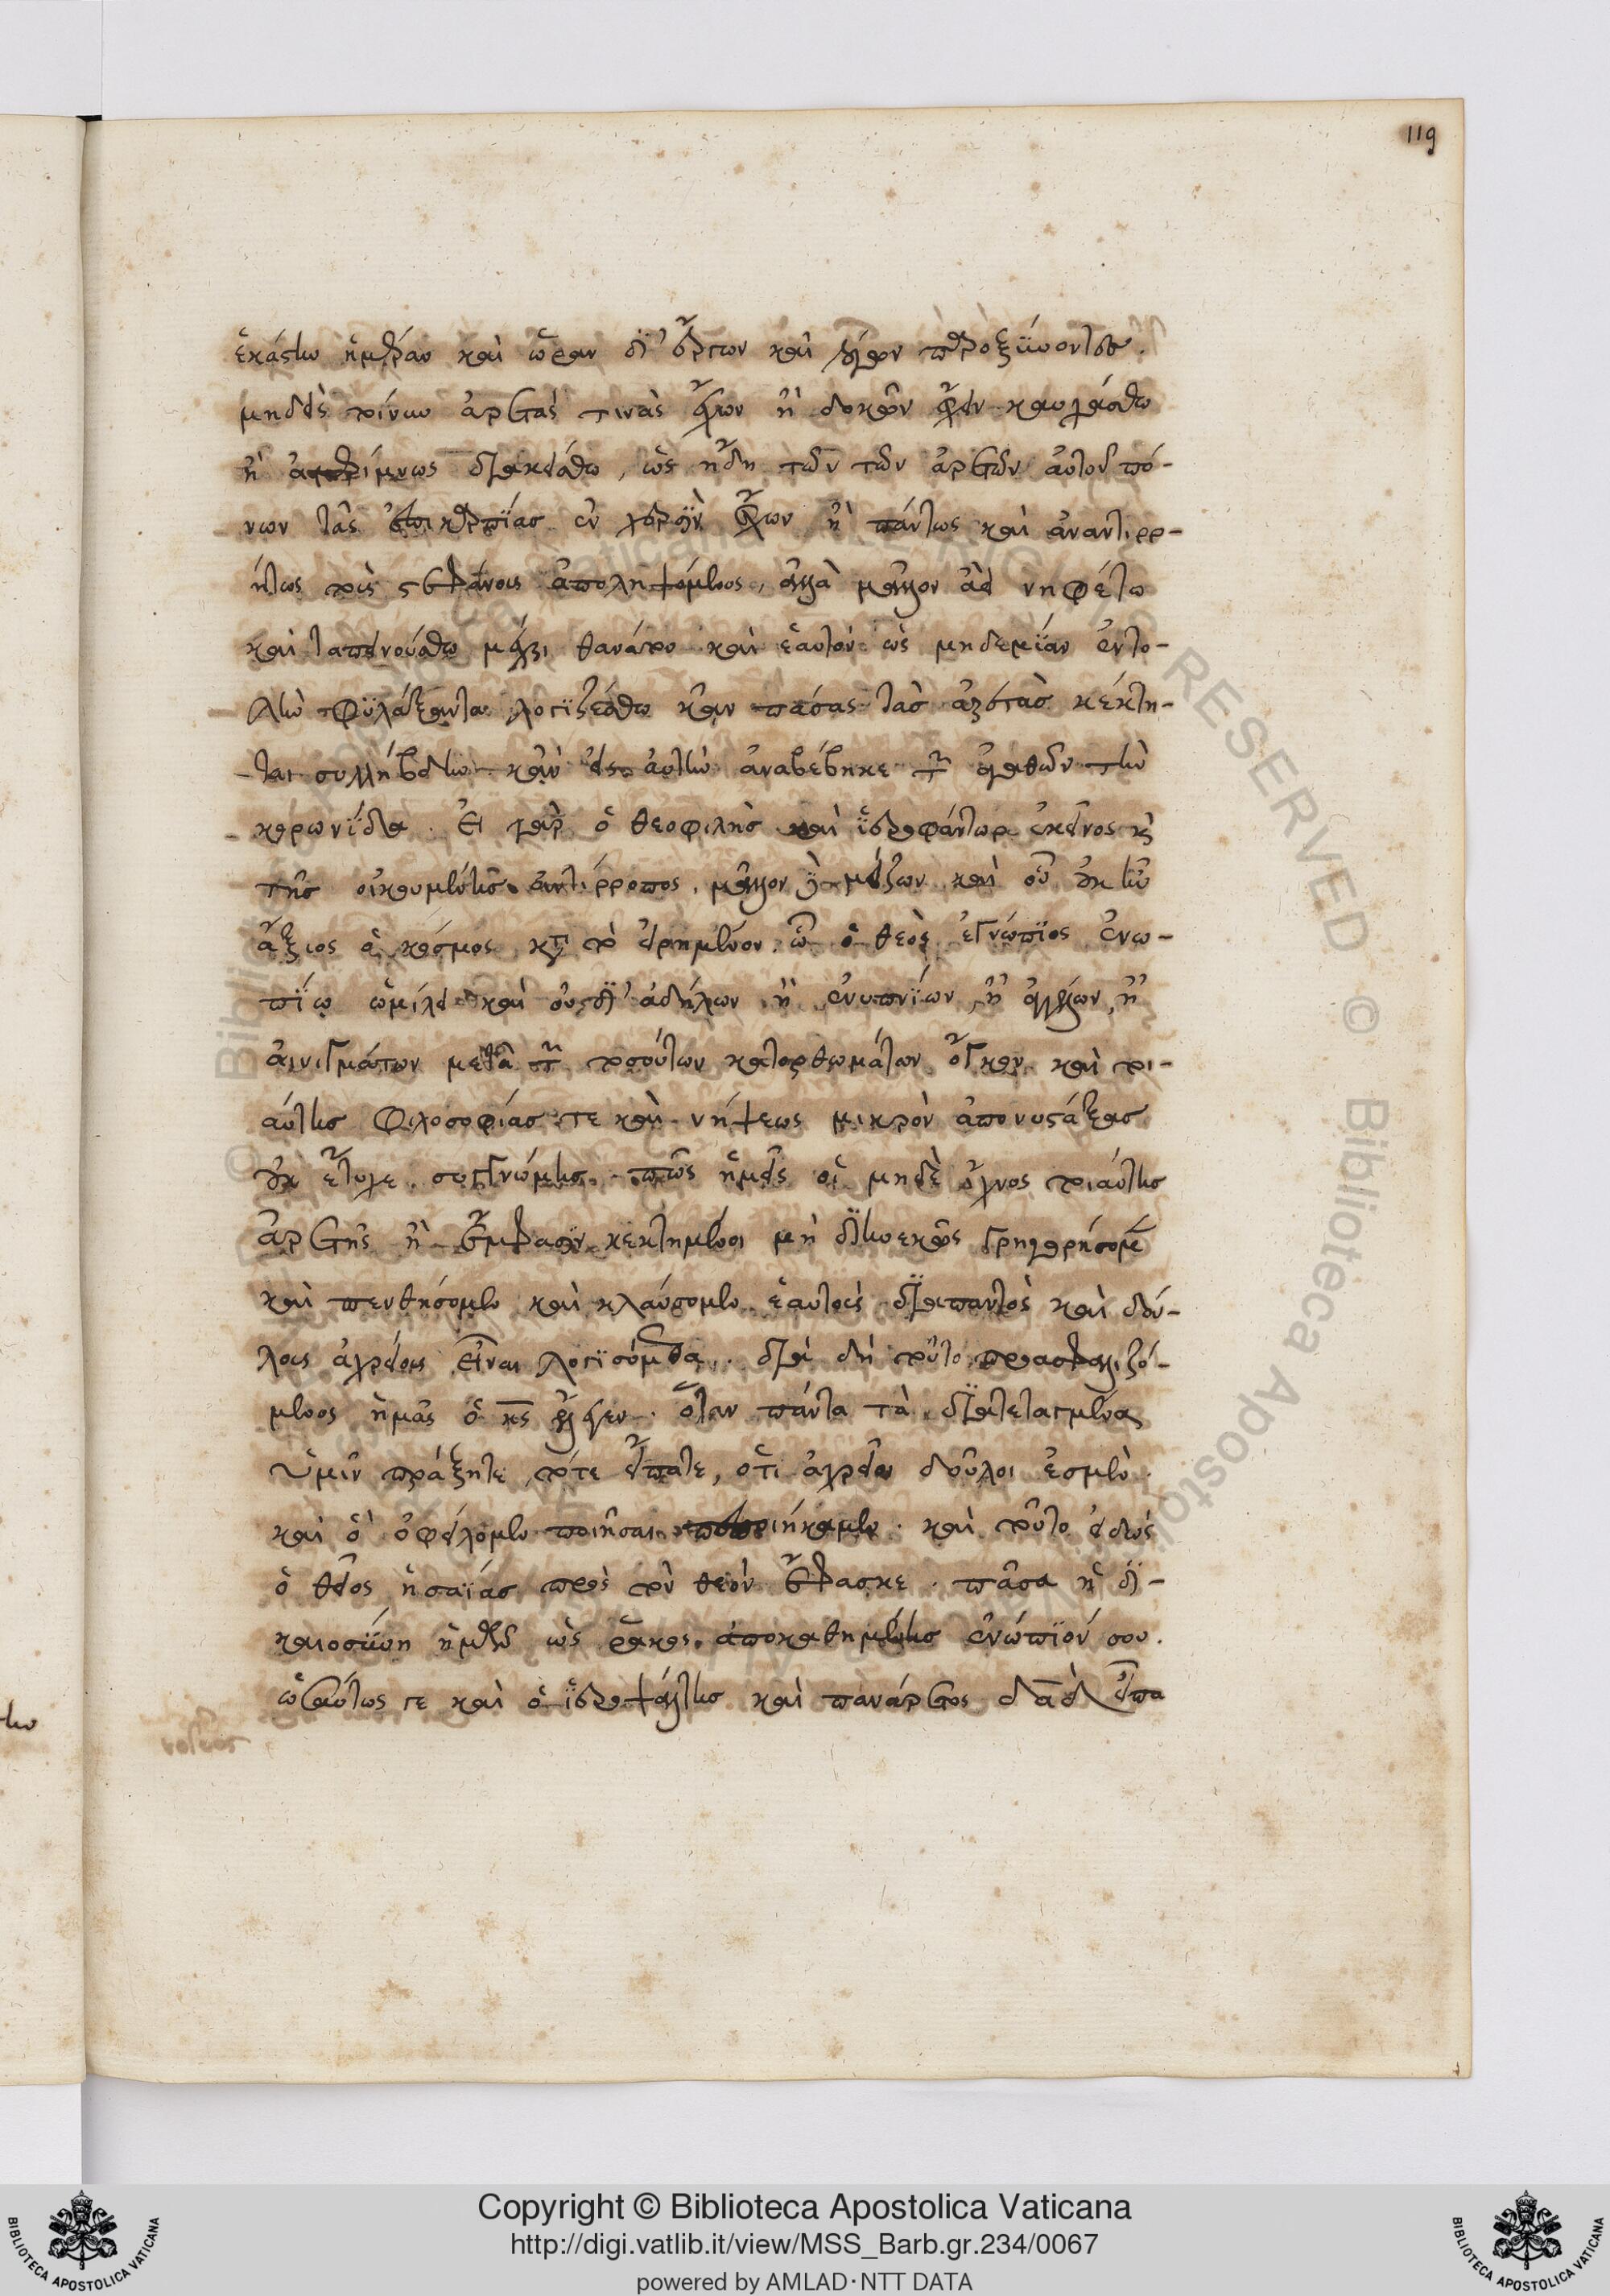 119
ἑκάστην ἡμέραν καὶ ὥραν δι' ἔργων καὶ λόγων προξενοῦντες.
μηδεὶς τοίνυν ἀρετάς τινὰς ἔχων ἢ δοκῶν ἔχειν καυχάσθω
ἢ ἀμερίμνως διακείσθω, ὡς ἤδη τῶν τῶν ἀρετῶν αὐτοῦ πό-
νων τὰς ἐπικαρπίας ἐν χερσὶν ἔχων ἢ πάντως καὶ ἀναντιρρ-
ήτως τοῖς στεφάνοις ἀποληψόμενος, ἀλλὰ μᾶλλον ἀεὶ νηφέτω
καὶ ταπεινούσθω μέχρι θανάτου καὶ ἑαυτὸν ὡς μηδεμίαν ἐντο-
λὴν φυλάξαντα λογιζέσθω κἂν πάσας τὰς ἀρετὰς κέκτη-
ται συλλήβδην κἂν εἰς αὐτὴν ἀναβέβηκε τῶν ἀγαθῶν τὴν
κορωνίδα. Εἰ γὰρ ὁ θεοφιλὴς καὶ ἱεροφάντωρ ἐκεῖνος καὶ
τῆς οἰκουμένης ἀντίρροπος, μᾶλλον δὲ μείζων καὶ οὗ οὐκ ἦν
ἄξιος ὁ κόσμος κατὰ τὸ εἰρημένον. ᾧ ὁ θεὸς ἐνώπιος ἐνω-
πίῳ ὡμίλει καὶ οὐ δι' ἀδήλων ἢ ἐνυπνίων, ἢ ἀγγέλων, ἢ
αἰνιγμάτων μετὰ τῶν τοσούτων κατορθωμάτων ὄγκον καὶ τοι-
αύτης φιλοσοφίας τε καὶ νήψεως μικρὸν ἀπονυστάξας
οὐκ ἔτυχε συγγνώμης. πῶς ἡμεῖς οἱ μηδὲ ἴχνος τοιαύτης
ἀρετῆς ἢ ἔμφασιν κεκτημένοι μὴ διηνεκῶς γρηγορήσομεν
καὶ πενθήσομεν καὶ κλαύσομεν ἑαυτοὺς διαπαντὸς καὶ δού-
λους ἀχρείους εἶναι λογισόμεθα. διὰ δὴ τοῦτο προασφαλιζό-
μενος ἡμᾶς ὁ κς ἔλεγεν. ὅταν πάντα τὰ διατεταγμένα
ὑμῖν πράξητε, τότε εἴπατε, ὅτι ἀχρεῖοι δοῦλοι ἐσμὲν.
καὶ ὃ ὀφείλομεν ποιῆσαι πεποιήκαμεν. καὶ τοῦτο εἰδὼς
ὁ θεῖος ἡσαΐας πρὸς τὸν θεὸν ἔφασκε. πᾶσα ἡ δι-
καιοσύνη ἡμῶν ὡς ῥάκος ἀποκαθημένης ἐνώπιόν σου.
ὡσαύτως τε καὶ ὁ ἱεροψάλτης καὶ πανάρετος δαδ εἶπα
Copyright © Biblioteca Apostolica Vaticana
http://digi.vatlib.it/view/MSS_Barb.gr.234/0067
powered by AMLAD·NTT DATA